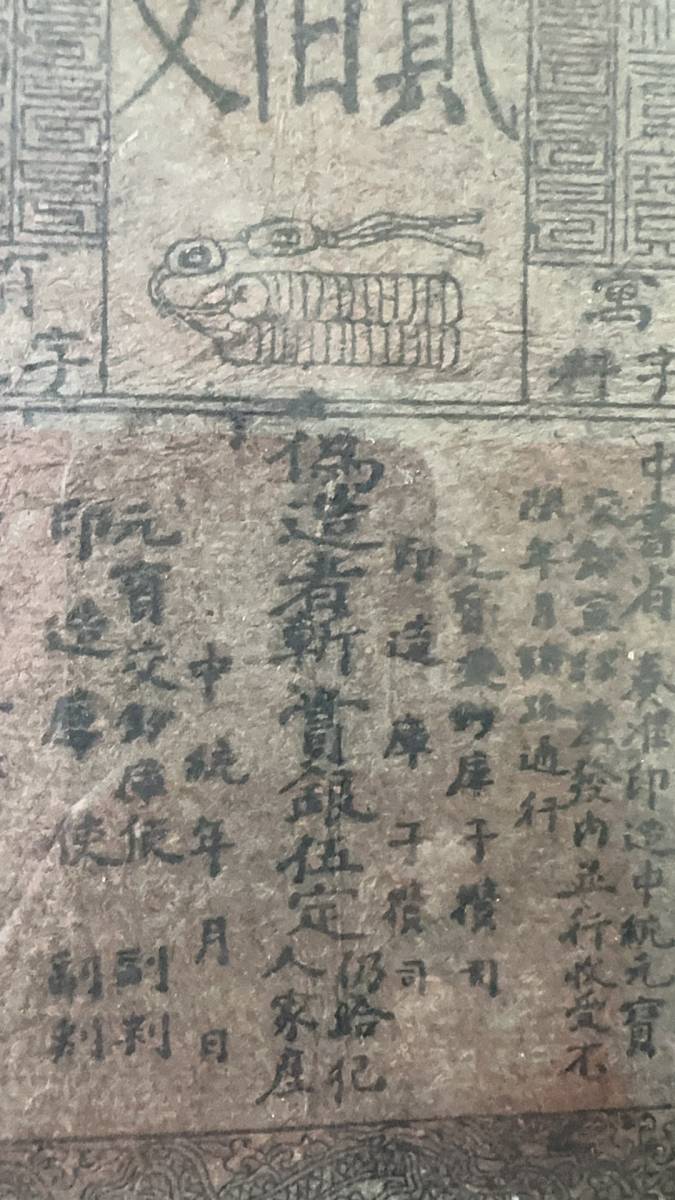 貳伯文
字料
字
中書省 奏准印造中統元寶
交鈔宣課差發內並行收受不
限年月諸路通行
元寶交鈔庫子攢司
印造庫子攢司
偽造者斬賞銀伍定仍給犯
人家產
中統年月日
元寶交鈔庫使副判
印造庫使副判